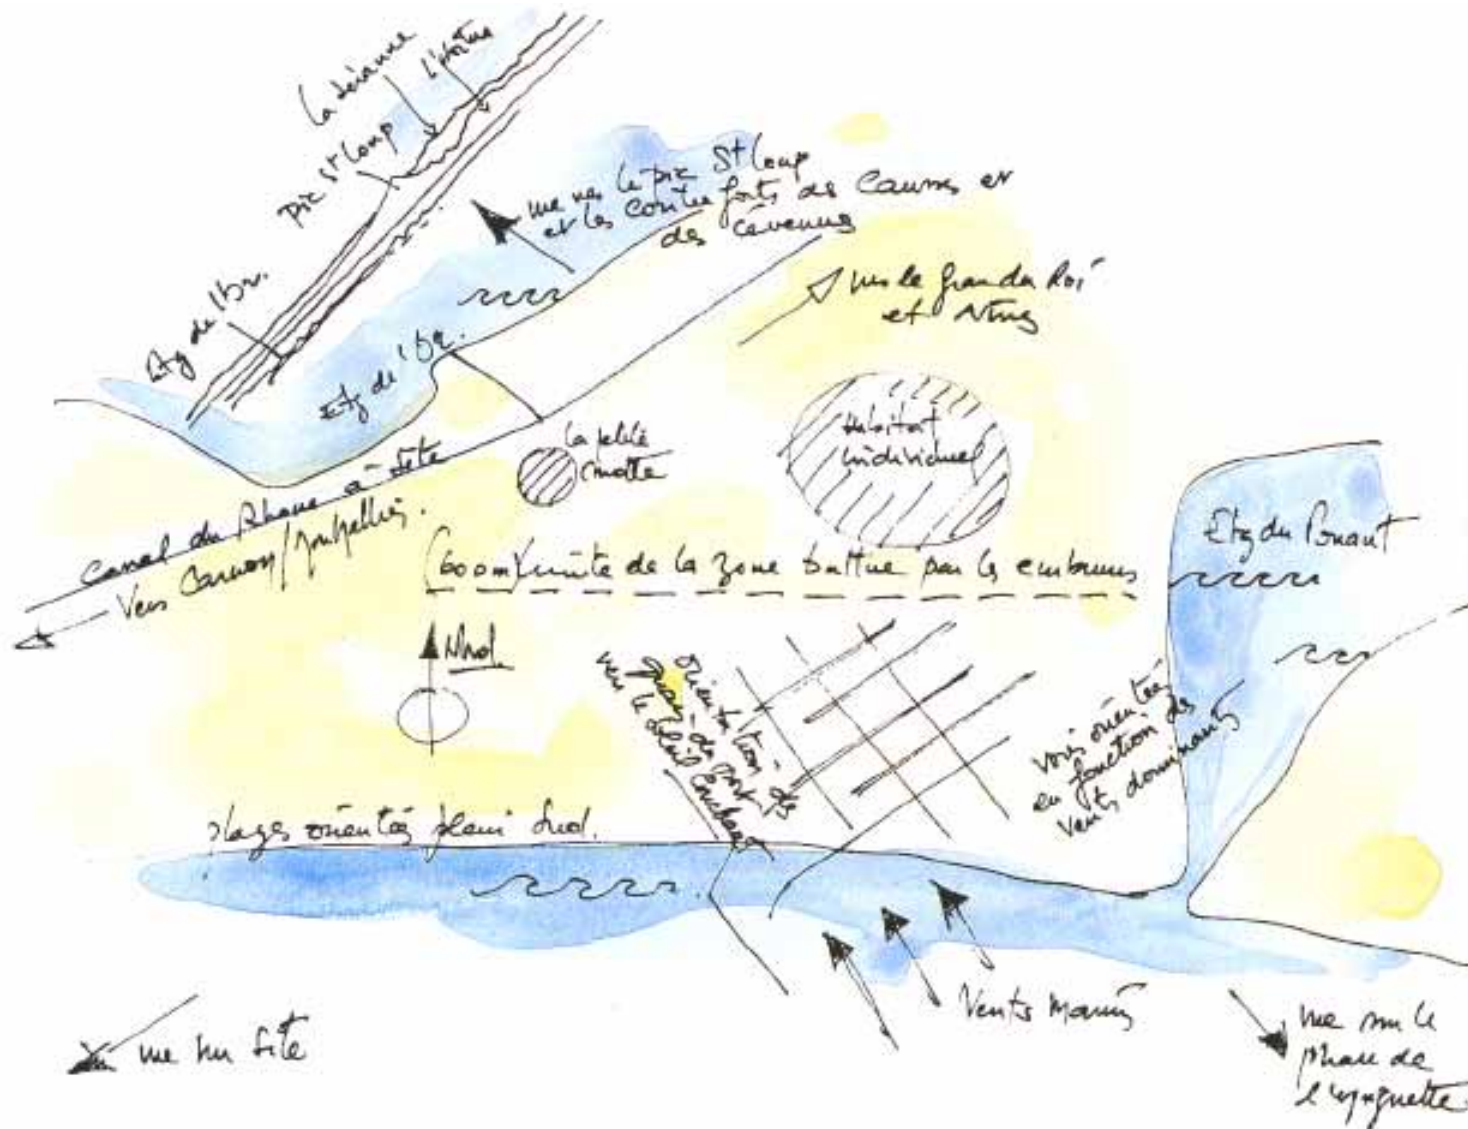 la séranne
l'hortus
pic St Loup
Etg de l'or.
vue vers le pic St Loup
et les contreforts des Causses et
des Cévennes
vers le grau du Roi
et Nîmes
Etg de l'or.
la petite
motte
Habitat
individuel
Canal du Rhône à Sète
vers Carnon/Montpellier.
(600m) limite de la zone battue par les embruns
Etg du Ponant
Nord.
orientation des
quais du port
vers le soleil couchant
voies orientées
en fonction des
vents dominants
plages orientées plein Sud.
Vents Marins
vue sur Sète
vue sur le
phare de
l'espiguette